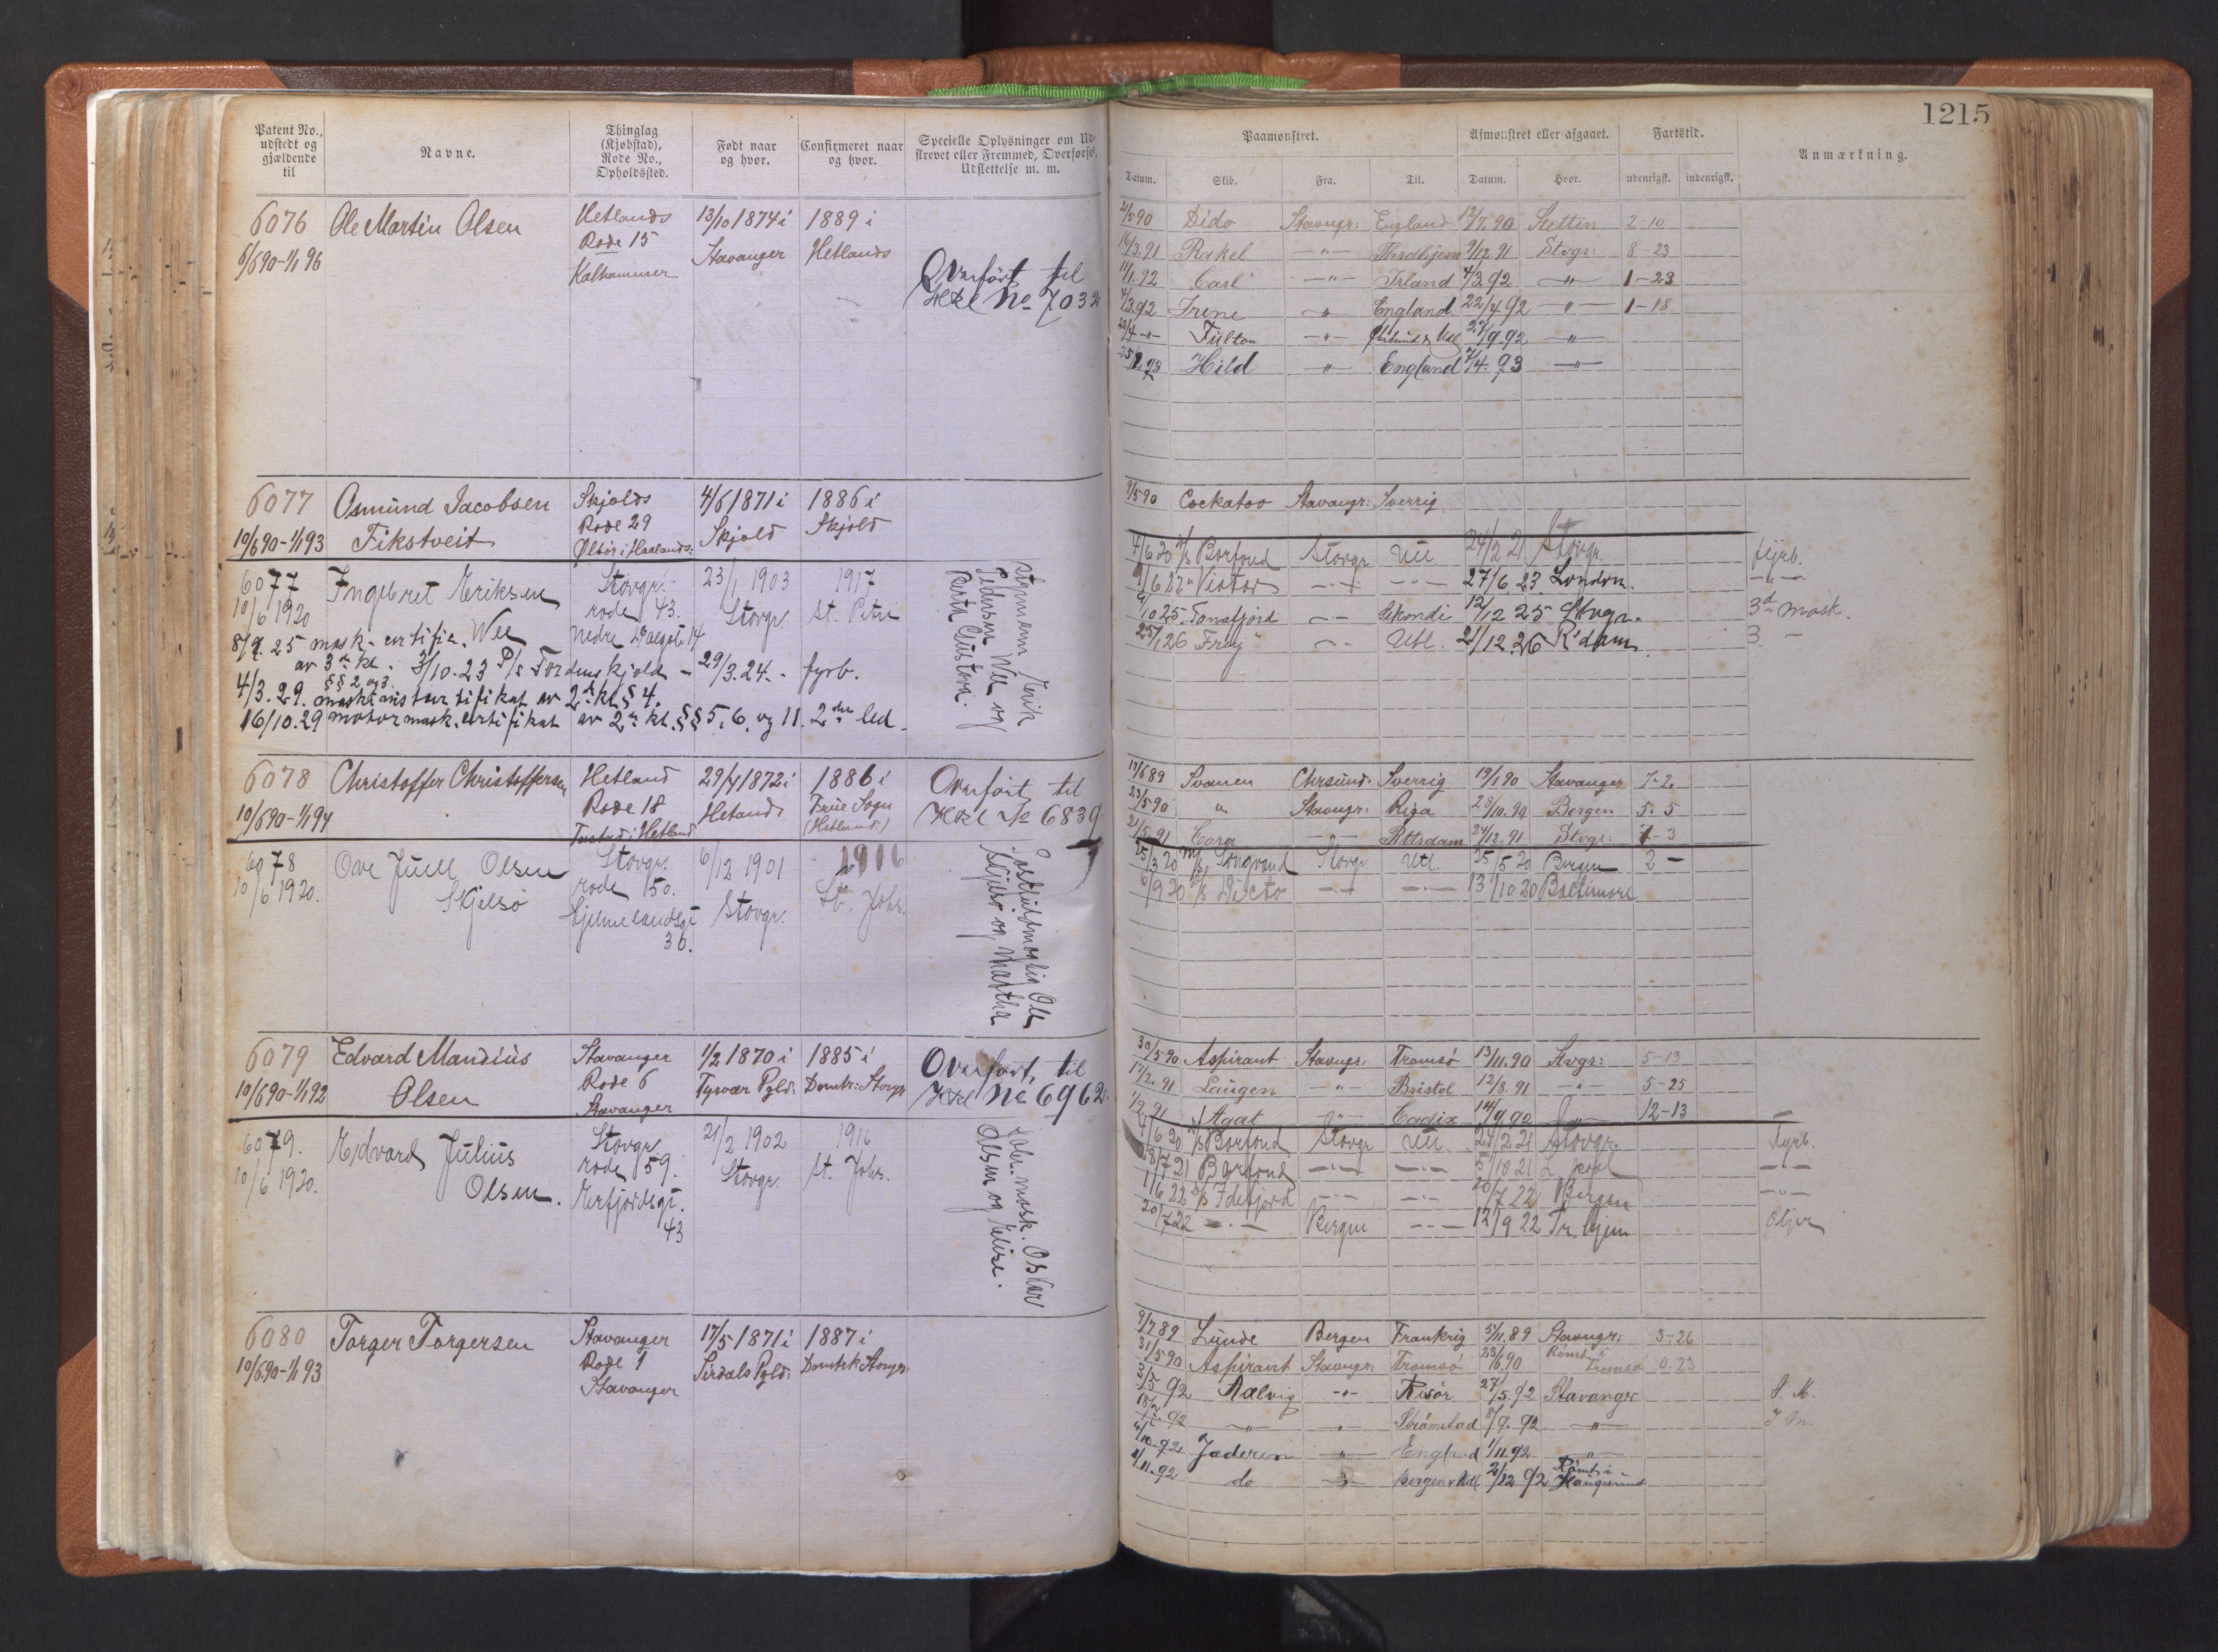 1215
Patent No., udstedt og gjældende til | Navne. | Thinglag (Kjøbstad), Rode No., Opholdssted. | Født naar og hvor. | Confirmeret naar og hvor. | Specielle Oplysninger om Udskrevet eller Fremmed, Overførsel, Udslettelse m. m.
Paamønstret. | Afmønstret eller afgaaet. | Fartstid. | Anmærkning.
Datum. | Skib. | Fra. | Til. | Datum. | Hvor. | udenrigsk. | indenrigsk.
6076 Ole Martin Olsen Hetlands 13/10 1874 i 1889 i
Rode 15 Stavanger Hetlands
6/6 90-1/1 96 Kalhammer
Overført til
No 7032
2/5 90 Dido Stavngr: England 12/7. 90 Stettin 2-10
16/3. 91 Rakel -"- 9/12 91 Stvgr: 8-23
11/1. 92 Carl -"- Irland 4/3. 92 -"- 1-23
4/3. 92 Irene -"- England 22/4. 92 -"- 1-18
22/4 -"- Fulton -"- 27/9. 92 -"-
Hild -"- England 7/4. 93 -"-
6077 Osmund Jacobsen Skjolds 4/6 1871 i 1886 i
Rode 29 Skjold Skjold
10/6 90-1/1 93 Fikstveit Ølbør i Haalands:
9/5 90 Cockatoo Stavangr: Sverrig
6077 Ingebret Eriksen Stavgr. 23/1 1903 1917
10/6 1920 Wee rode 43. Stavgr. St. Petri
Nedre Dalgst. 14
8/9. 25 mask. certific.
av 3die kl. 3/10-23 P/s Tordenskjold - 29/3. 24. - fyrb.
§§ 2 og 3.
4/3. 29. av 2. kl. § 4.
16/10. 29 motormask. certifikat av 2. kl. §§ 5, 6, og 11. 2det led.
Styrmann Erik
Pedersen Wee og
Berta Gustava.
4/6 20 D/s Borfond Stavgr Utl 24/2 21 Stavgr. fyrb.
27/6. 23 London. -"-
9/10 25. Tanafjord 12/12 25 Stvgr. 3d mask.
25/1 26 Frey Utl. 21/12. 26 R'dam. 3 -
6078 Christoffer Christoffersen Hetland 29/4 1872 i 1886 i
Rode 18 Hetlands Frue Sogn
10/6 90-1/1 94 Tastad i Hetland (Hetland)
Overført til
No 6839
17/6 89 Svanen Chrsund. Sverrig 19/1 90 Stavanger 7-2.
23/5 90 " Stavngr: Riga 28/10. 90 Bergen 5-5
21/5. 91 Cora -"- 24/12. 91 Stvgr: 7-3
6078 Ove Juell Olsen Stavgr. 6/12 1901 1916
10/6 1920. Skjelsø rode 50. Stavgr. St. Johs.
Hjelmelandsgt
36.
Ole
Skjelsø og Martha
25/3 20 Songvand Stavgr. Utl 25/5 20 Bergen 2 -
6/9 20 -"- -"- 13/10 20 Baltimore
6079 Edvard Mandius Stavanger 1/2 1870 i 1885 i
Rode 6 Tysvær Pgld: Domk: Stavgr
10/6 90-1/1 92 Olsen Stavanger
Overført til
No 6962.
30/5 90 Aspirant Stavngr: Tromsø 13/11. 90 Stvgr: 5-13
17/2. 91 Laugen -"- Bristol 12/8. 91 -"- 5-25
1/9 91 Agat -"- Cadix 14/9 92 -"- 12-13
6079. Edvard Julius Stavgr. 21/2 1902 1916
10/6 1920. Olsen. rode 59. Stavgr. St. Johs.
Erfjordsgt.
43
mask. Oskar
Olsen og Elise.
4/6 20 D/s Borfond Stavgr Utl. 24/2 21 Stavgr. fyrb.
18/7 21 Borfond -"- -"- 5/10 21 L.pool -"-
1/6 22 D/s Idefjord -"- -"- 20/7 22 Bergen -"-
20/7 22 -"- Bergen -"- 12/9 22 Tr.hjem Oljer
6080 Torger Torgersen Stavanger 17/5 1871 i 1887 i
Rode 1 Sirdals Pgld: Domk Stavgr
10/6 90-1/1 93 Stavanger
9/7 89 Lunde Bergen Frankrig 5/11. 89 Stavngr: 3-26
31/5 90 Aspirant Stavngr: Tromsø 23/6. 90 Rømt i Tromsø 0-23
3/5 92 Aalvig -"- Risør 27/5. 92 Stavangr
-"- -"- Strømstad 8/9. 92 -"-
4/10. 92 Jæderen -"- England 1/11. 92 -"-
2/11. 92 do -"- Bergen & Utl. 2/12 92 Rømt i Haugesund